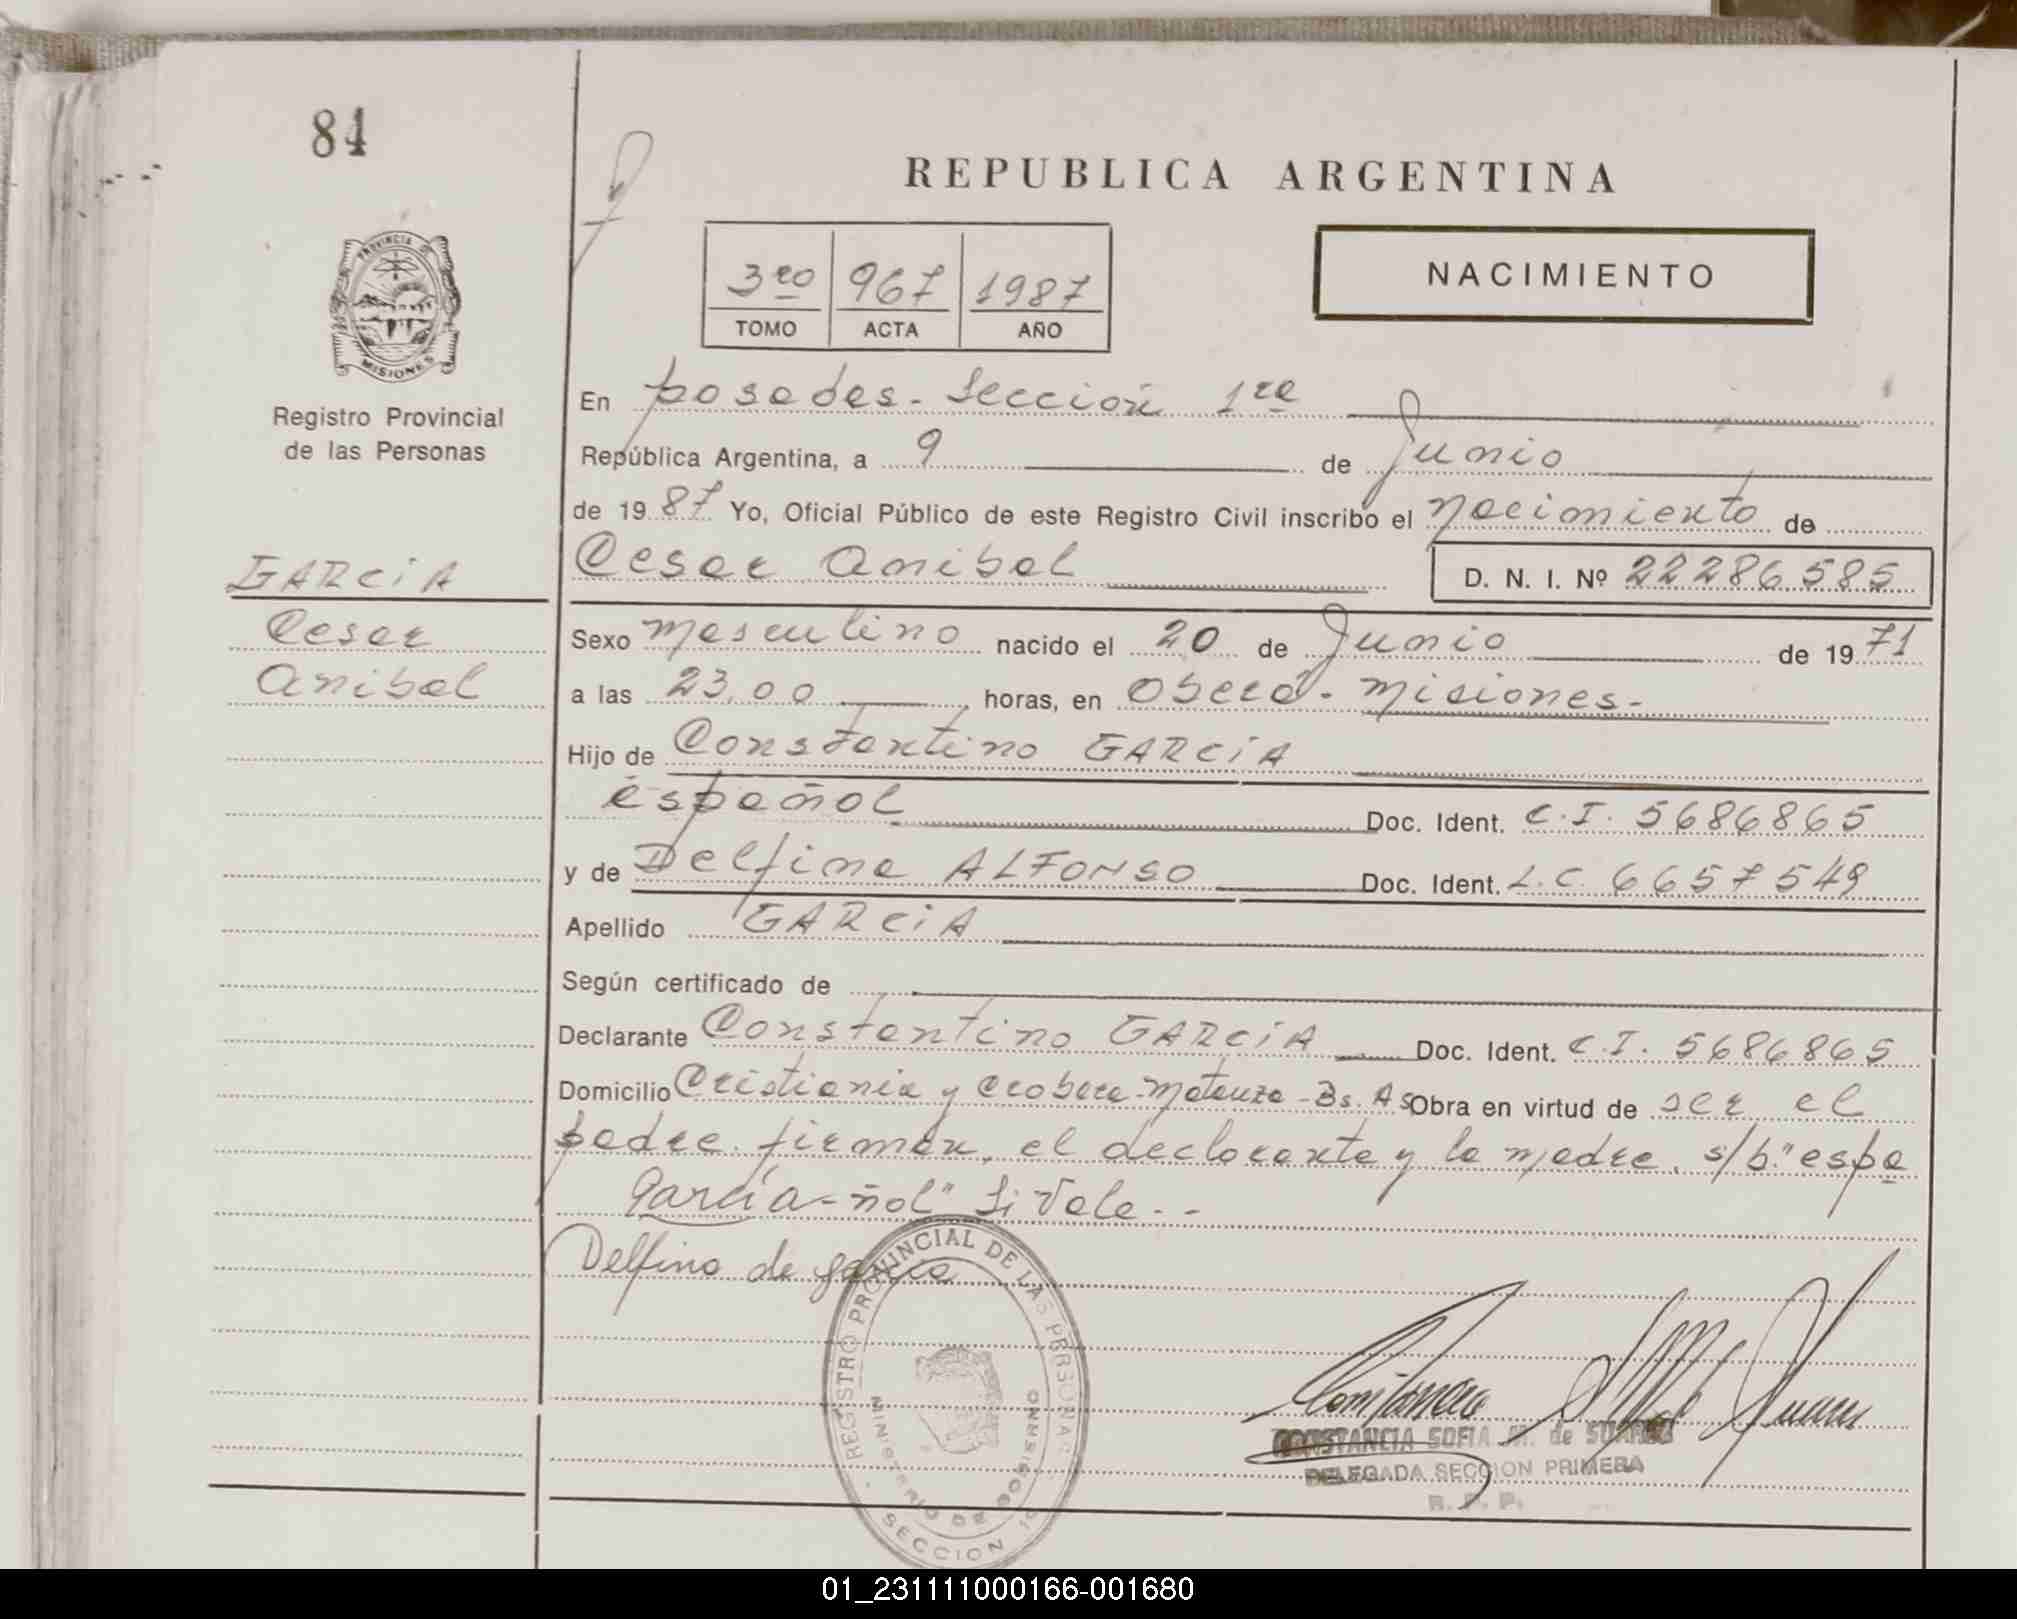 84
REPUBLICA ARGENTINA
PROVINCIA DE
MISIONES
Registro Provincial
de las Personas
3ro 967 1987
TOMO ACTA AÑO
NACIMIENTO
En posadas - Sección 1ra
República Argentina, a 9 de Junio
de 1987 Yo, Oficial Público de este Registro Civil inscribo el Nacimiento de
Cesar Anibal D. N. I. Nº 22286585
GARCiA
Cesar
Anibal
Sexo Masculino nacido el 20 de Junio de 1971
a las 23,00 horas, en Oberá - Misiones -
Hijo de Constantino GARCiA
español Doc. Ident. C.I. 5686865
y de Delfina ALFONSO Doc. Ident. L.C. 6657549
Apellido GARCiA
Según certificado de
Declarante Constantino GARCiA Doc. Ident. C.I. 5686865
Domicilio Cristiania y Matanza - Bs. As Obra en virtud de ser el
padre. firman, el declarante y la madre. s/b "espa
García -ñol" Si Vale. -
Delfina de garcia
REGISTRO PROVINCIAL DE LAS PERSONAS
MINISTERIO DE GOBIERNO
SECCION 1
CONSTANCIA SOFIA M. de SUAREZ
DELEGADA SECCION PRIMERA
R. P. P.
01_231111000166-001680